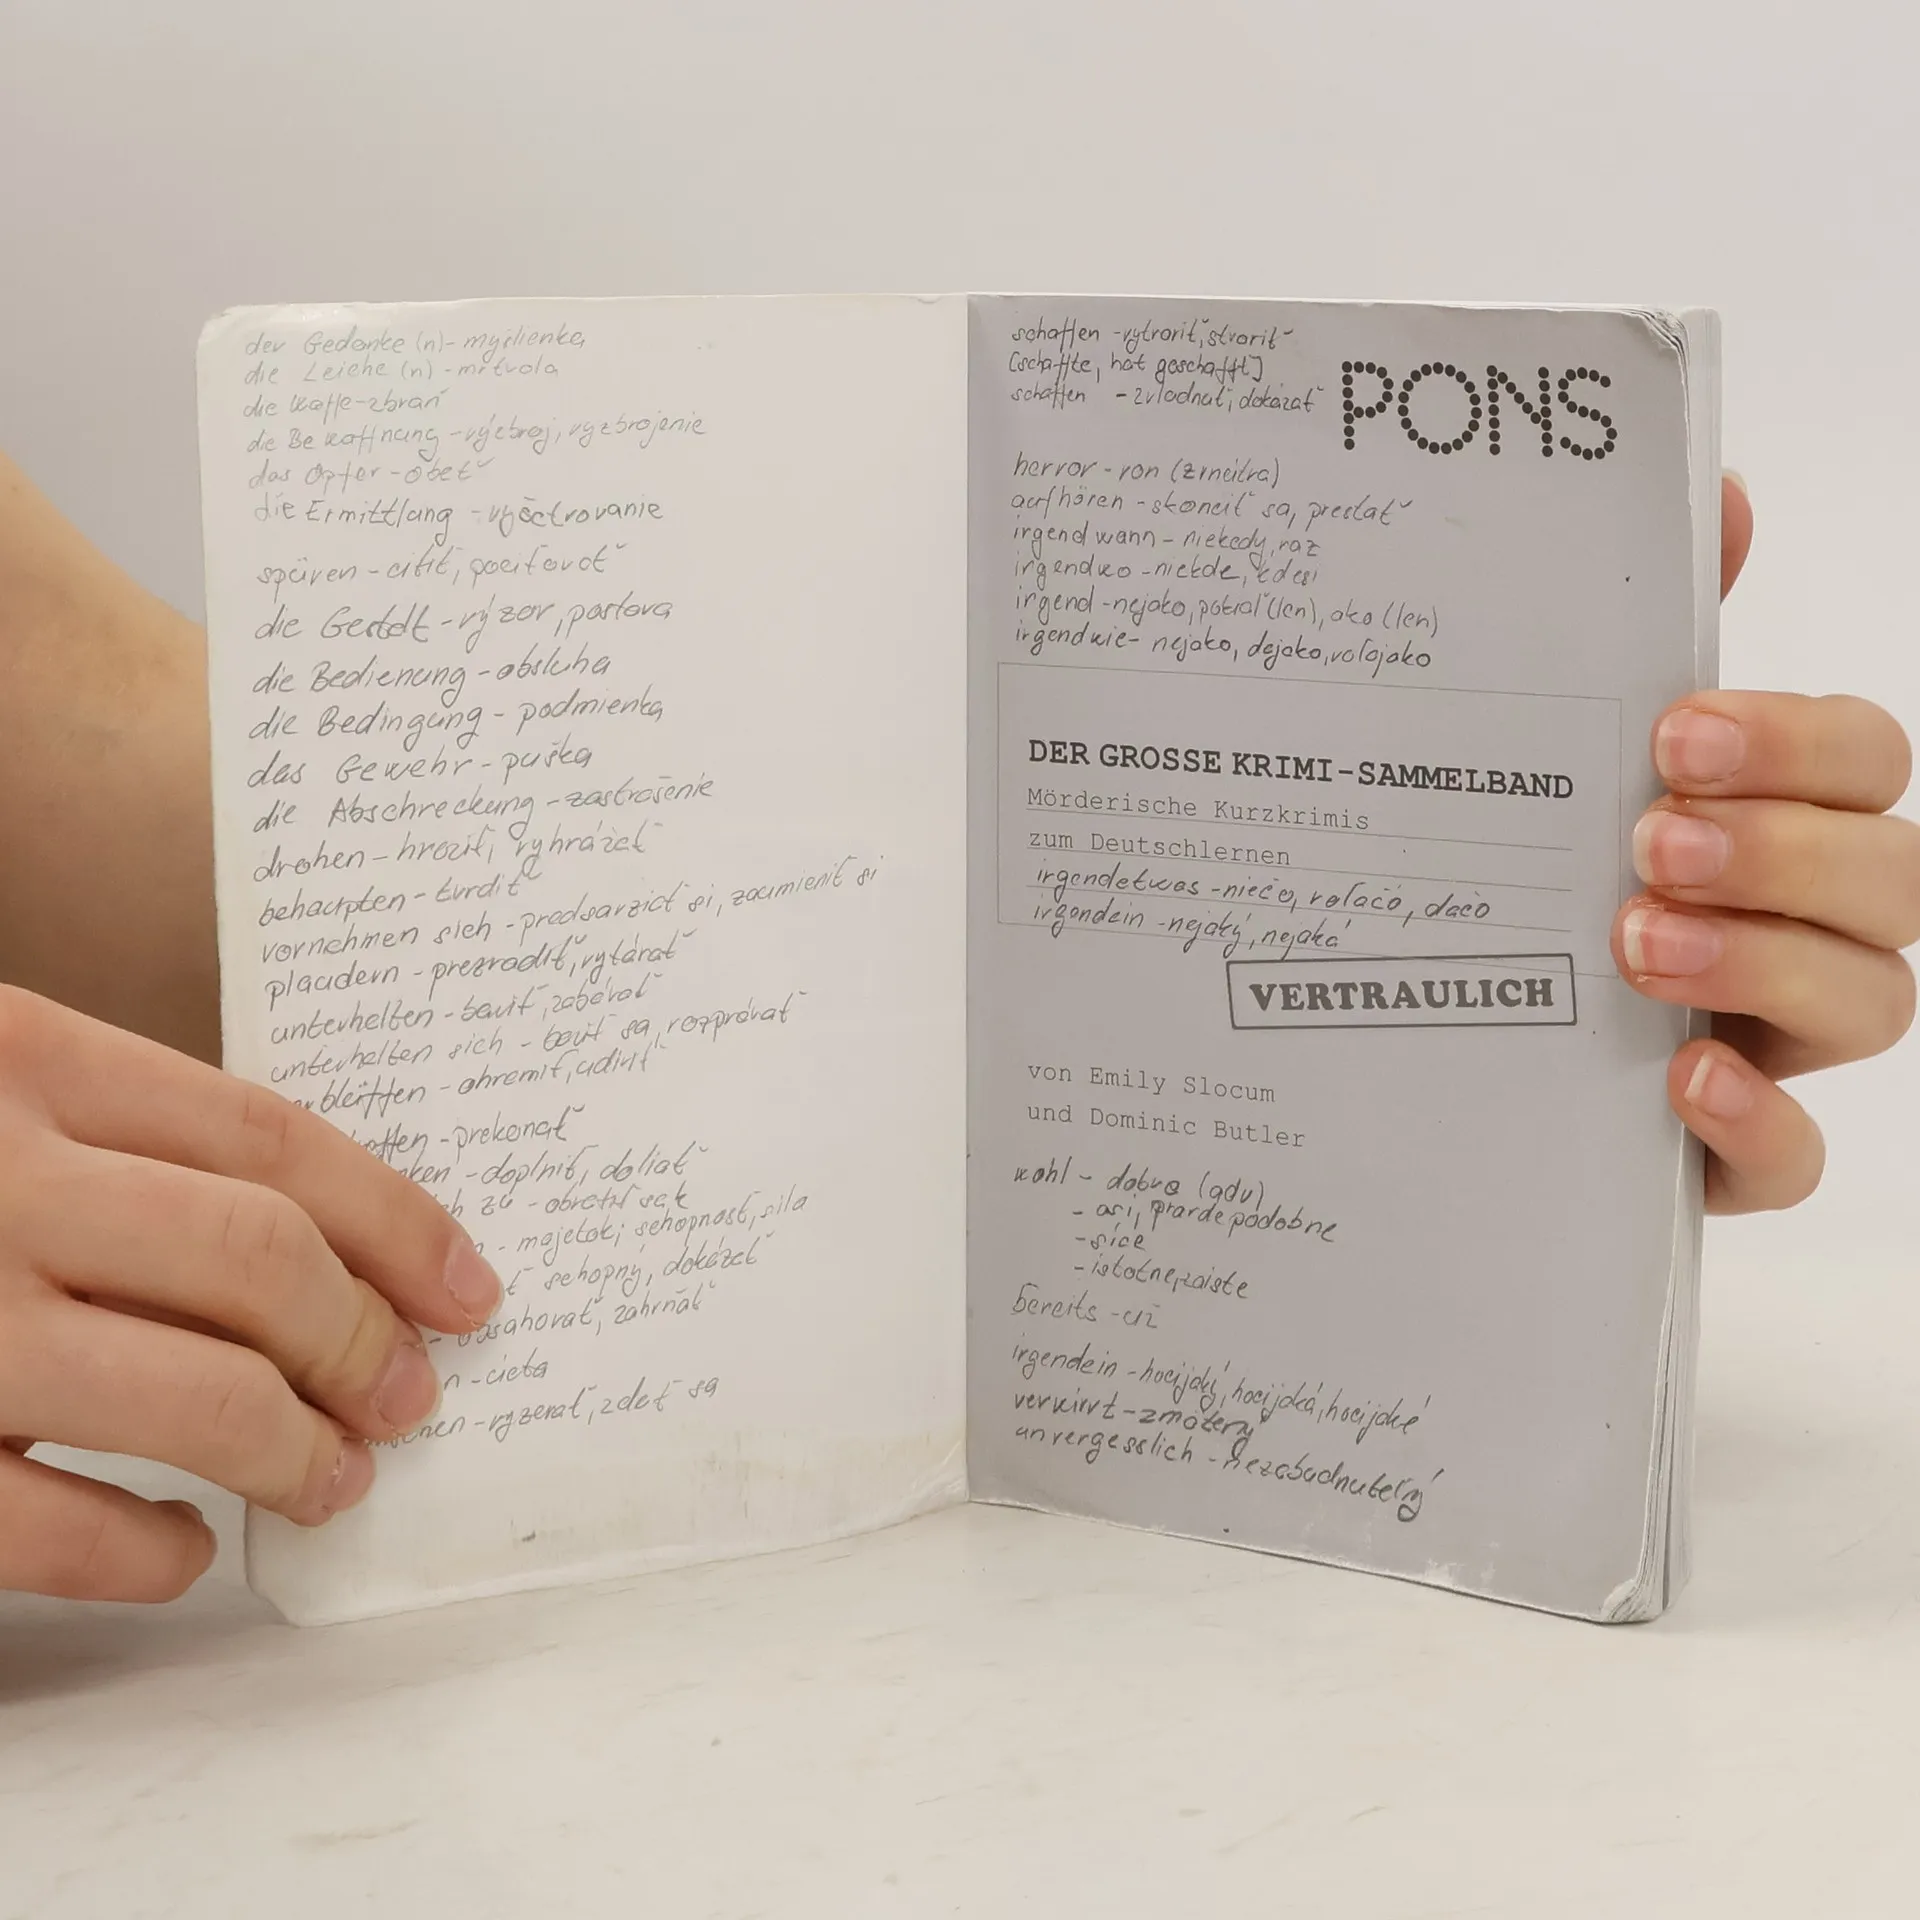 der Gedanke (n) - myšlienka
die Leiche (n) - mŕtvola
die Waffe - zbraň
die Bewaffnung - výzbroj, vyzbrojenie
das Opfer - obeť
die Ermittlung - vyšetrovanie
spüren - cítiť, pociťovať
die Gestalt - výzor, postava
die Bedienung - obsluha
die Bedingung - podmienka
das Gewehr - puška
die Abschreckung - zastrašenie
drohen - hroziť, vyhrážať
behaupten - tvrdiť
vornehmen sich - predsavziať si, zaumieniť si
plaudern - prezradiť, vytárať
unterhalten - baviť, zabávať
unterhalten sich - baviť sa, rozprávať
bläffen - ohromiť, udiviť
- prekonať
nken - doplniť, doliať
ch zu - obrátiť sa k
n - majetok; schopnosť, sila
ť schopný, dokázať
- obsahovať, zahrňať
n - cieľa
nen - vyzerať, zdať sa
schaffen - vytvoriť, stvoriť
[schaffte, hat geschafft]
schaffen - zvládnuť, dokázať
PONS
hervor - von (zvnútra)
aufhören - skončiť sa, prestať
irgendwann - niekedy, raz
irgendwo - niekde, kdesi
irgend - nejako, pokiaľ (len), ako (len)
irgendwie - nejako, dajako, voľajako
DER GROSSE KRIMI-SAMMELBAND
Mörderische Kurzkrimis
zum Deutschlernen
irgendetwas - niečo, voľačo, dačo
irgendein - nejaký, nejaká
VERTRAULICH
von Emily Slocum
und Dominic Butler
wohl - dobre (adv)
- asi, pravdepodobne
- síce
- istotne, zaiste
bereits - už
irgendein - hocijaký, hocijaká, hocijaké
verwirrt - zmätený
unvergesslich - nezabudnuteľný